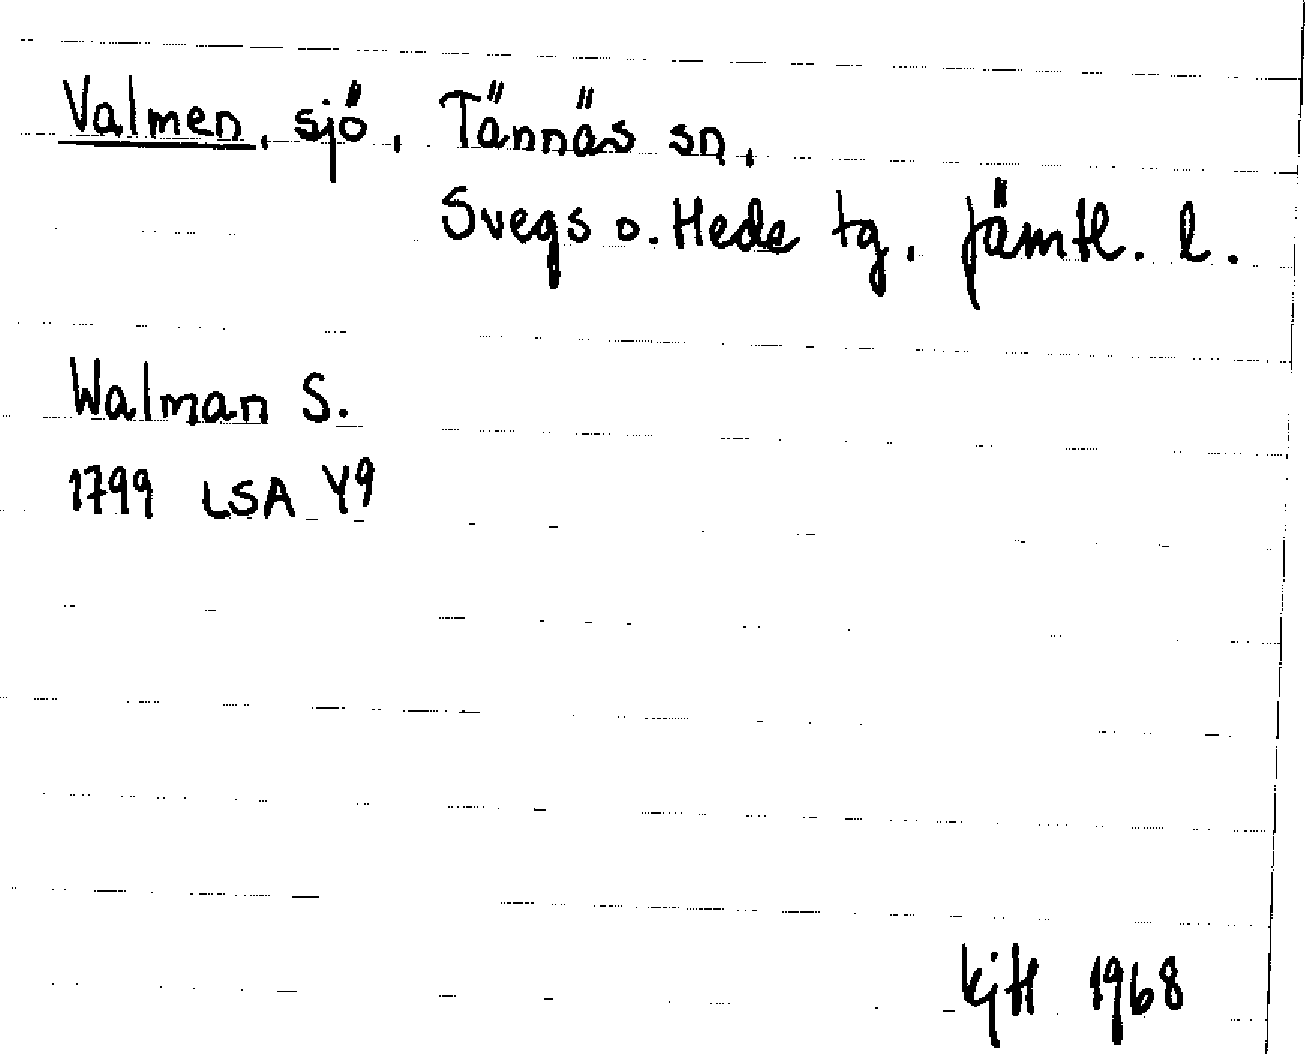 Valmen, sjö, Tännäs sn,
Svegs o. Hede tg, Jämtl. l.
Walman S.
1799 LSA Y9
KjH 1968